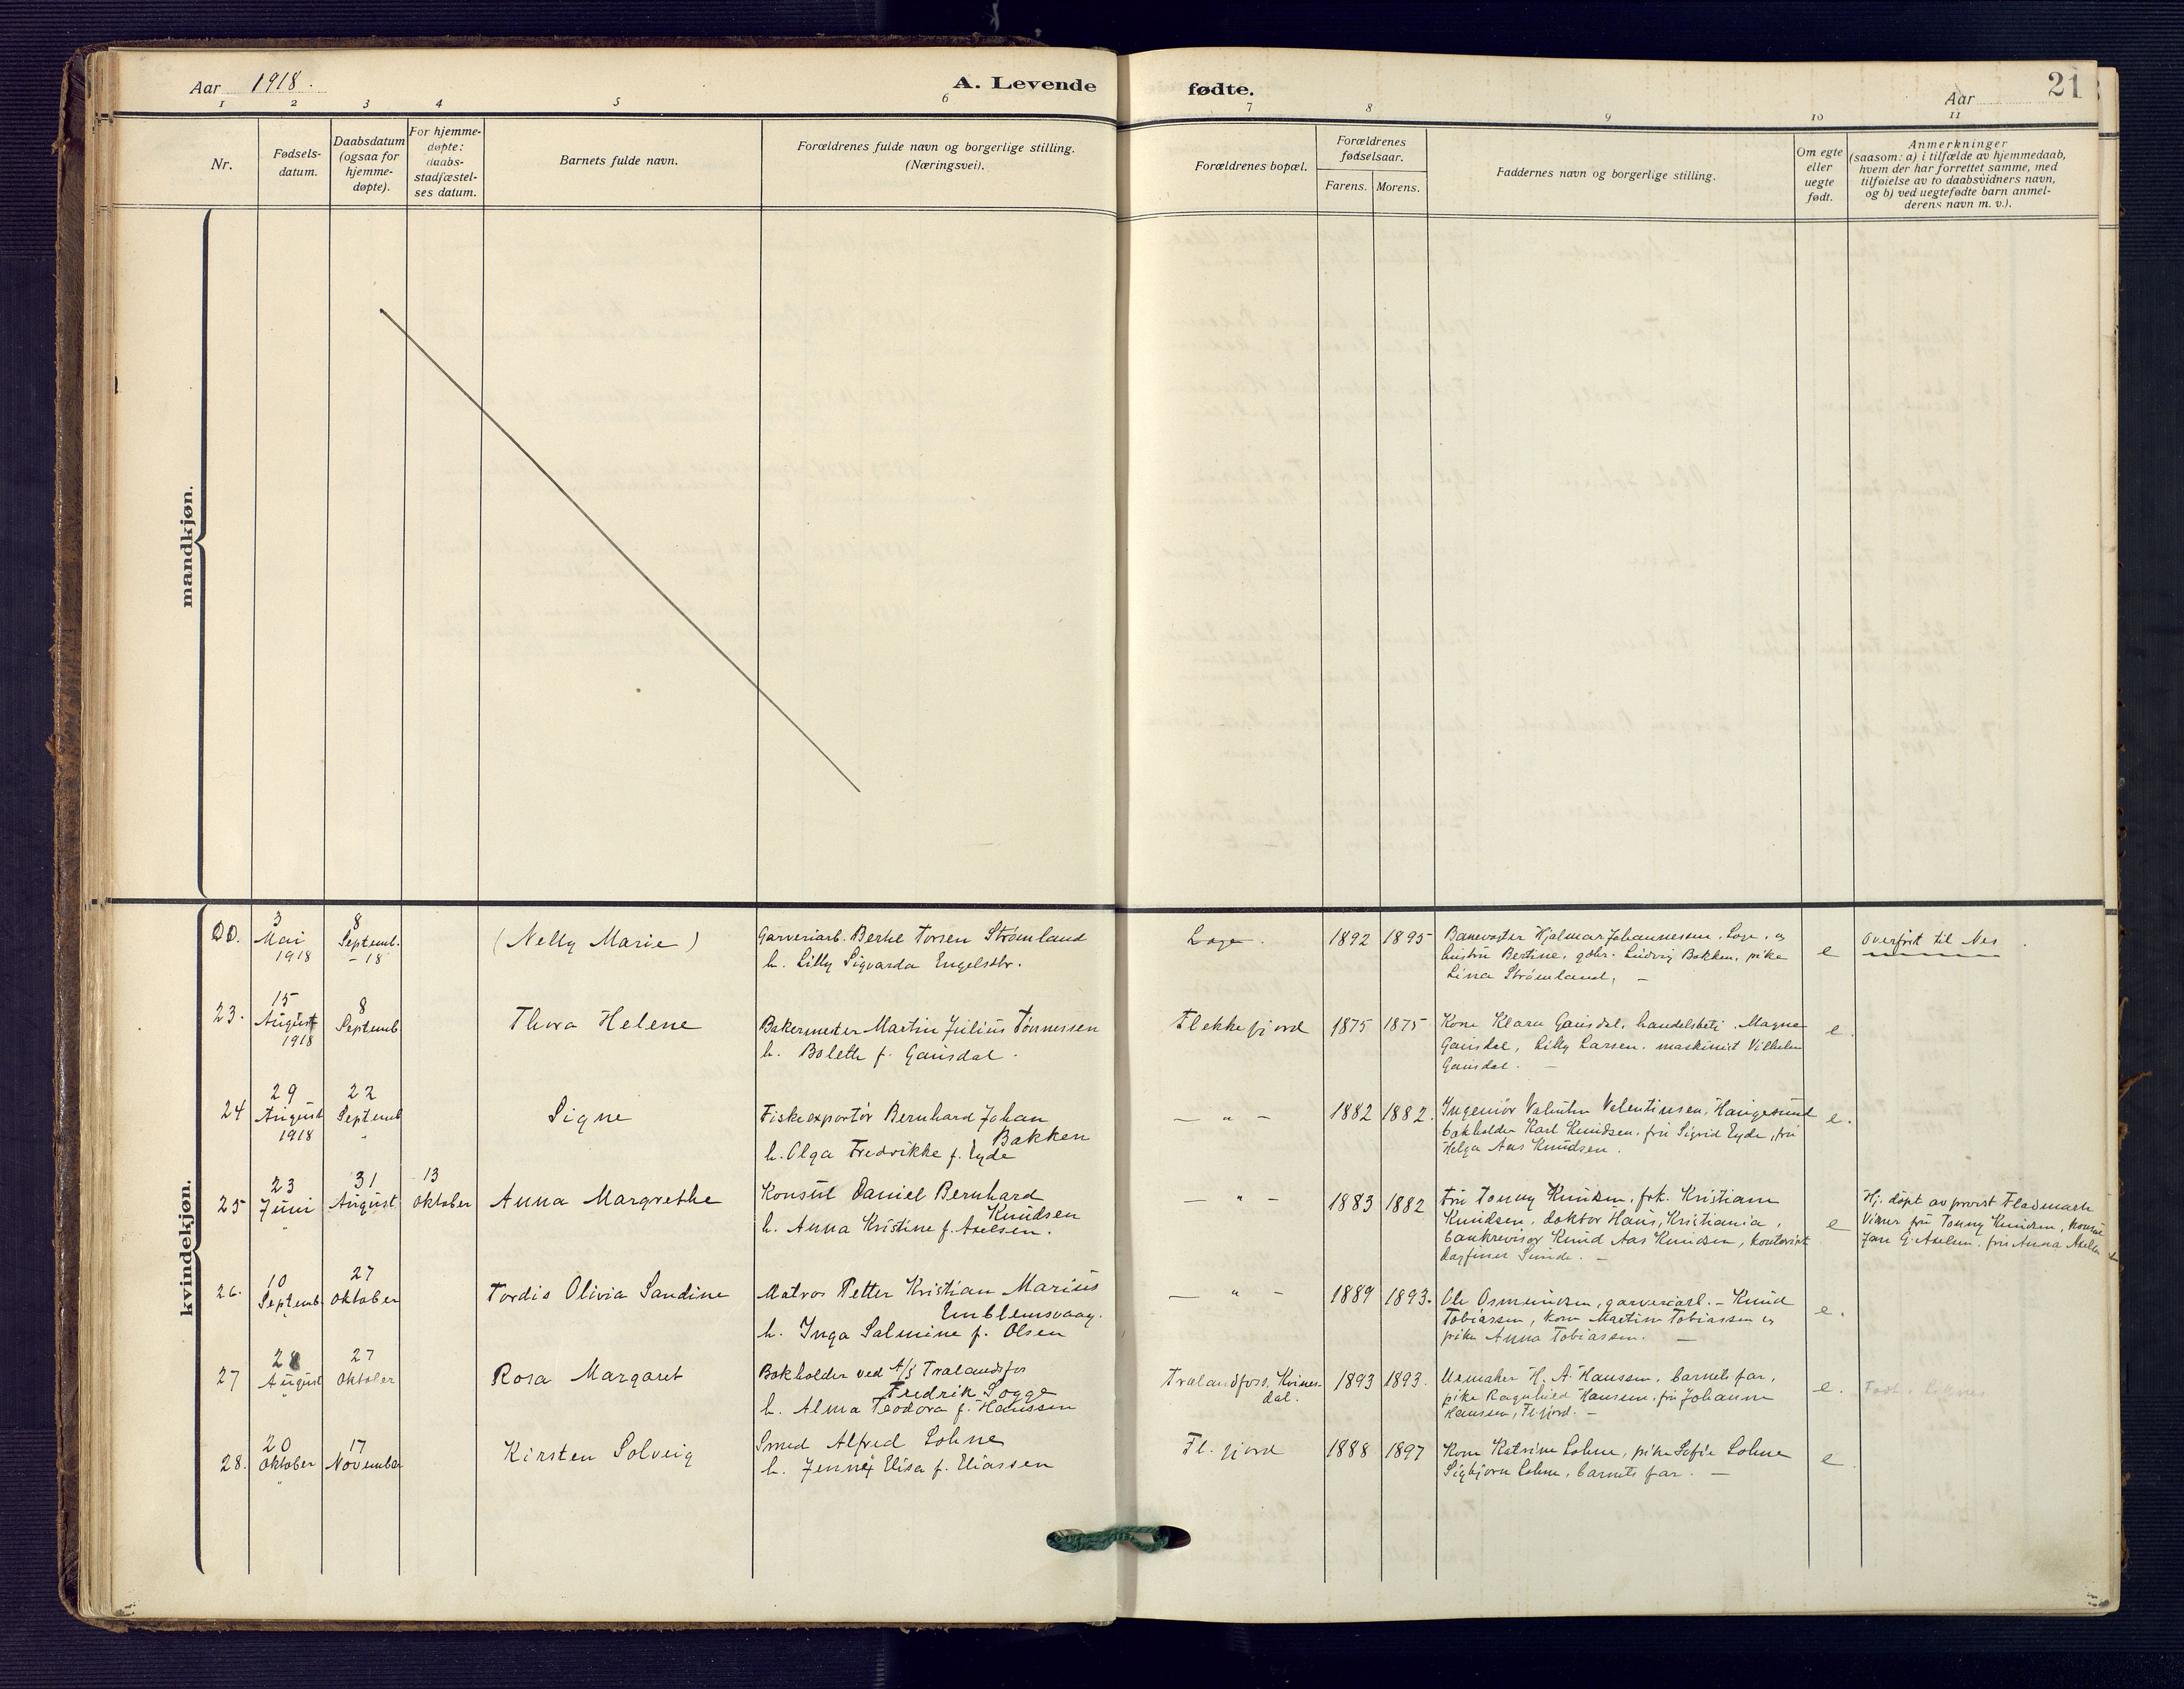 Aar 1918.
A. Levende fødte.
Aar
21
1 2 3 4 5 6 7 8 9 10 11
Nr.
Fødsels-
datum.
Daabsdatum
(ogsaa for
hjemme-
døpte).
For hjemme-
døpte:
daabs-
stadfæstel-
ses datum.
Barnets fulde navn.
Forældrenes fulde navn og borgerlige stilling.
(Næringsvei).
Forældrenes bopæl.
Forældrenes
fødselsaar.
Farens. Morens.
Faddernes navn og borgerlige stilling.
Om egte
eller
uegte
født.
Anmerkninger
(saasom: a) i tilfælde av hjemmedaab,
hvem der har forrettet samme, med
tilføielse av to daabsvidners navn,
og b) ved uegtefødte barn anmel-
derens navn m. v.).
mandkjøn.
kvindekjøn.
3
Mai
1918
8
Septemb.
- 18
(Nelly Marie)
Garveriarb. Berhe Torsen Strømland
h. Lilly Sigvarda Engelsstr.
Loge.
1892 1895
Banevogter Hjalmar Johannessen, Loge, og
hustru Bertine, gdbr. Ludvig Bakken, pike
Lina Strømland, -
e
Overført til Nes
23.
15
August
1918
8
Septemb
Thora Helene
Bakermester Martin Julius Tønnessen
h. Boleth f. Gausdal.
Flekkefjord
1875 1875
Kone Klara Gausdal, handelsbetj. Magne
Gausdal, Lilly Larsen, maskinist Vilhelm
Gausdal. -
e.
24
29
August
1918
22
Septemb
"
Signe
Fiskeexportør Bernhard Johan
Bakken
h. Olga Fredrikke f. Eyde
- " -
1882 1882.
Ingeniør Valentin Valentinsen, Haugesund
bokholder Karl Knudsen, fru Sigrid Eyde, fru
Helga Aas Knudsen.
e.
25
23
Juni
"
31
August
13
Oktober
Anna Margrethe
Konsul Daniel Bernhard
Knudsen
h. Anna Kristine f. Axelsen.
- " -
1883 1882
Fru Tonny Knudsen, frk. Kristiane
Knudsen, doktor Haus, Kristiania,
bankrevisor Knud Aas Knudsen, kontorist
Dagfinn Sunde. -
e
Hj. døpt av provst Flodmark
Vitner fru Tonny Knudsen, konsul
Jan G. Axelsen, fru Anna Axelsen
26.
10
Septemb
"
27
Oktober
Tordis Olivia Sandine
Matros Petter Kristian Marius
Emblemsvaag.
h. Inga Salmine f. Olsen
- " -
1889 1893.
Ole Osmundsen, garveriarb. - Knud
Tobiassen, kone Martine Tobiassen og
pike Anna Tobiassen. -
e.
27
28
August
"
27
Oktober
Rosa Margaret
Bokholder ved A/S Trælandsfos
Fredrik Sogge
h. Alma Teodora f. Hanssen
Trælandfoss, Kvines-
dal.
1893 1893.
Urmaker H. A. Hanssen, barnets far,
pike Ragnhild Hanssen, fru Johanne
Hanssen, Fl.fjord. -
e.
28.
20
Oktober
"
17
November
Kirsten Solveig
Smed Alfred Lohne
h. Jenny Elisa f. Eliassen
Fl. fjord
1888 1897
Kone Katrine Lohne, pike Sofie Lohne
Sigbjørn Lohne, barnets far. -
e.